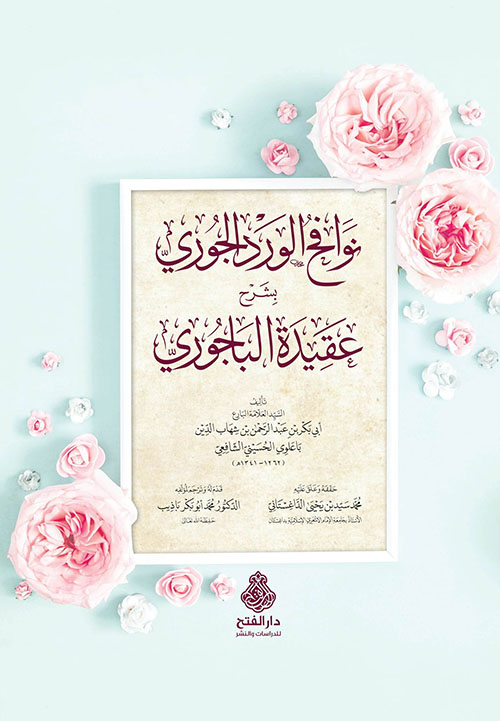 نوافح الورد الجوري
بشرح
عقيدة الباجوري
تأليف
السيد العلامة البارع
أبي بكر بن عبد الرحمن بن شهاب الدين
باعلوي الحسيني الشافعي
(١٢٦٢ - ١٣٤١هـ)
حققه وعلق عليه
محمد سيد بن يحيى الداغستاني
الأستاذ بجامعة الإمام الأشعري الإسلامية بداغستان
قدم له وترجم لمؤلفه
الدكتور محمد أبو بكر باذيب
حفظه الله تعالى
دار الفتح
للدراسات والنشر